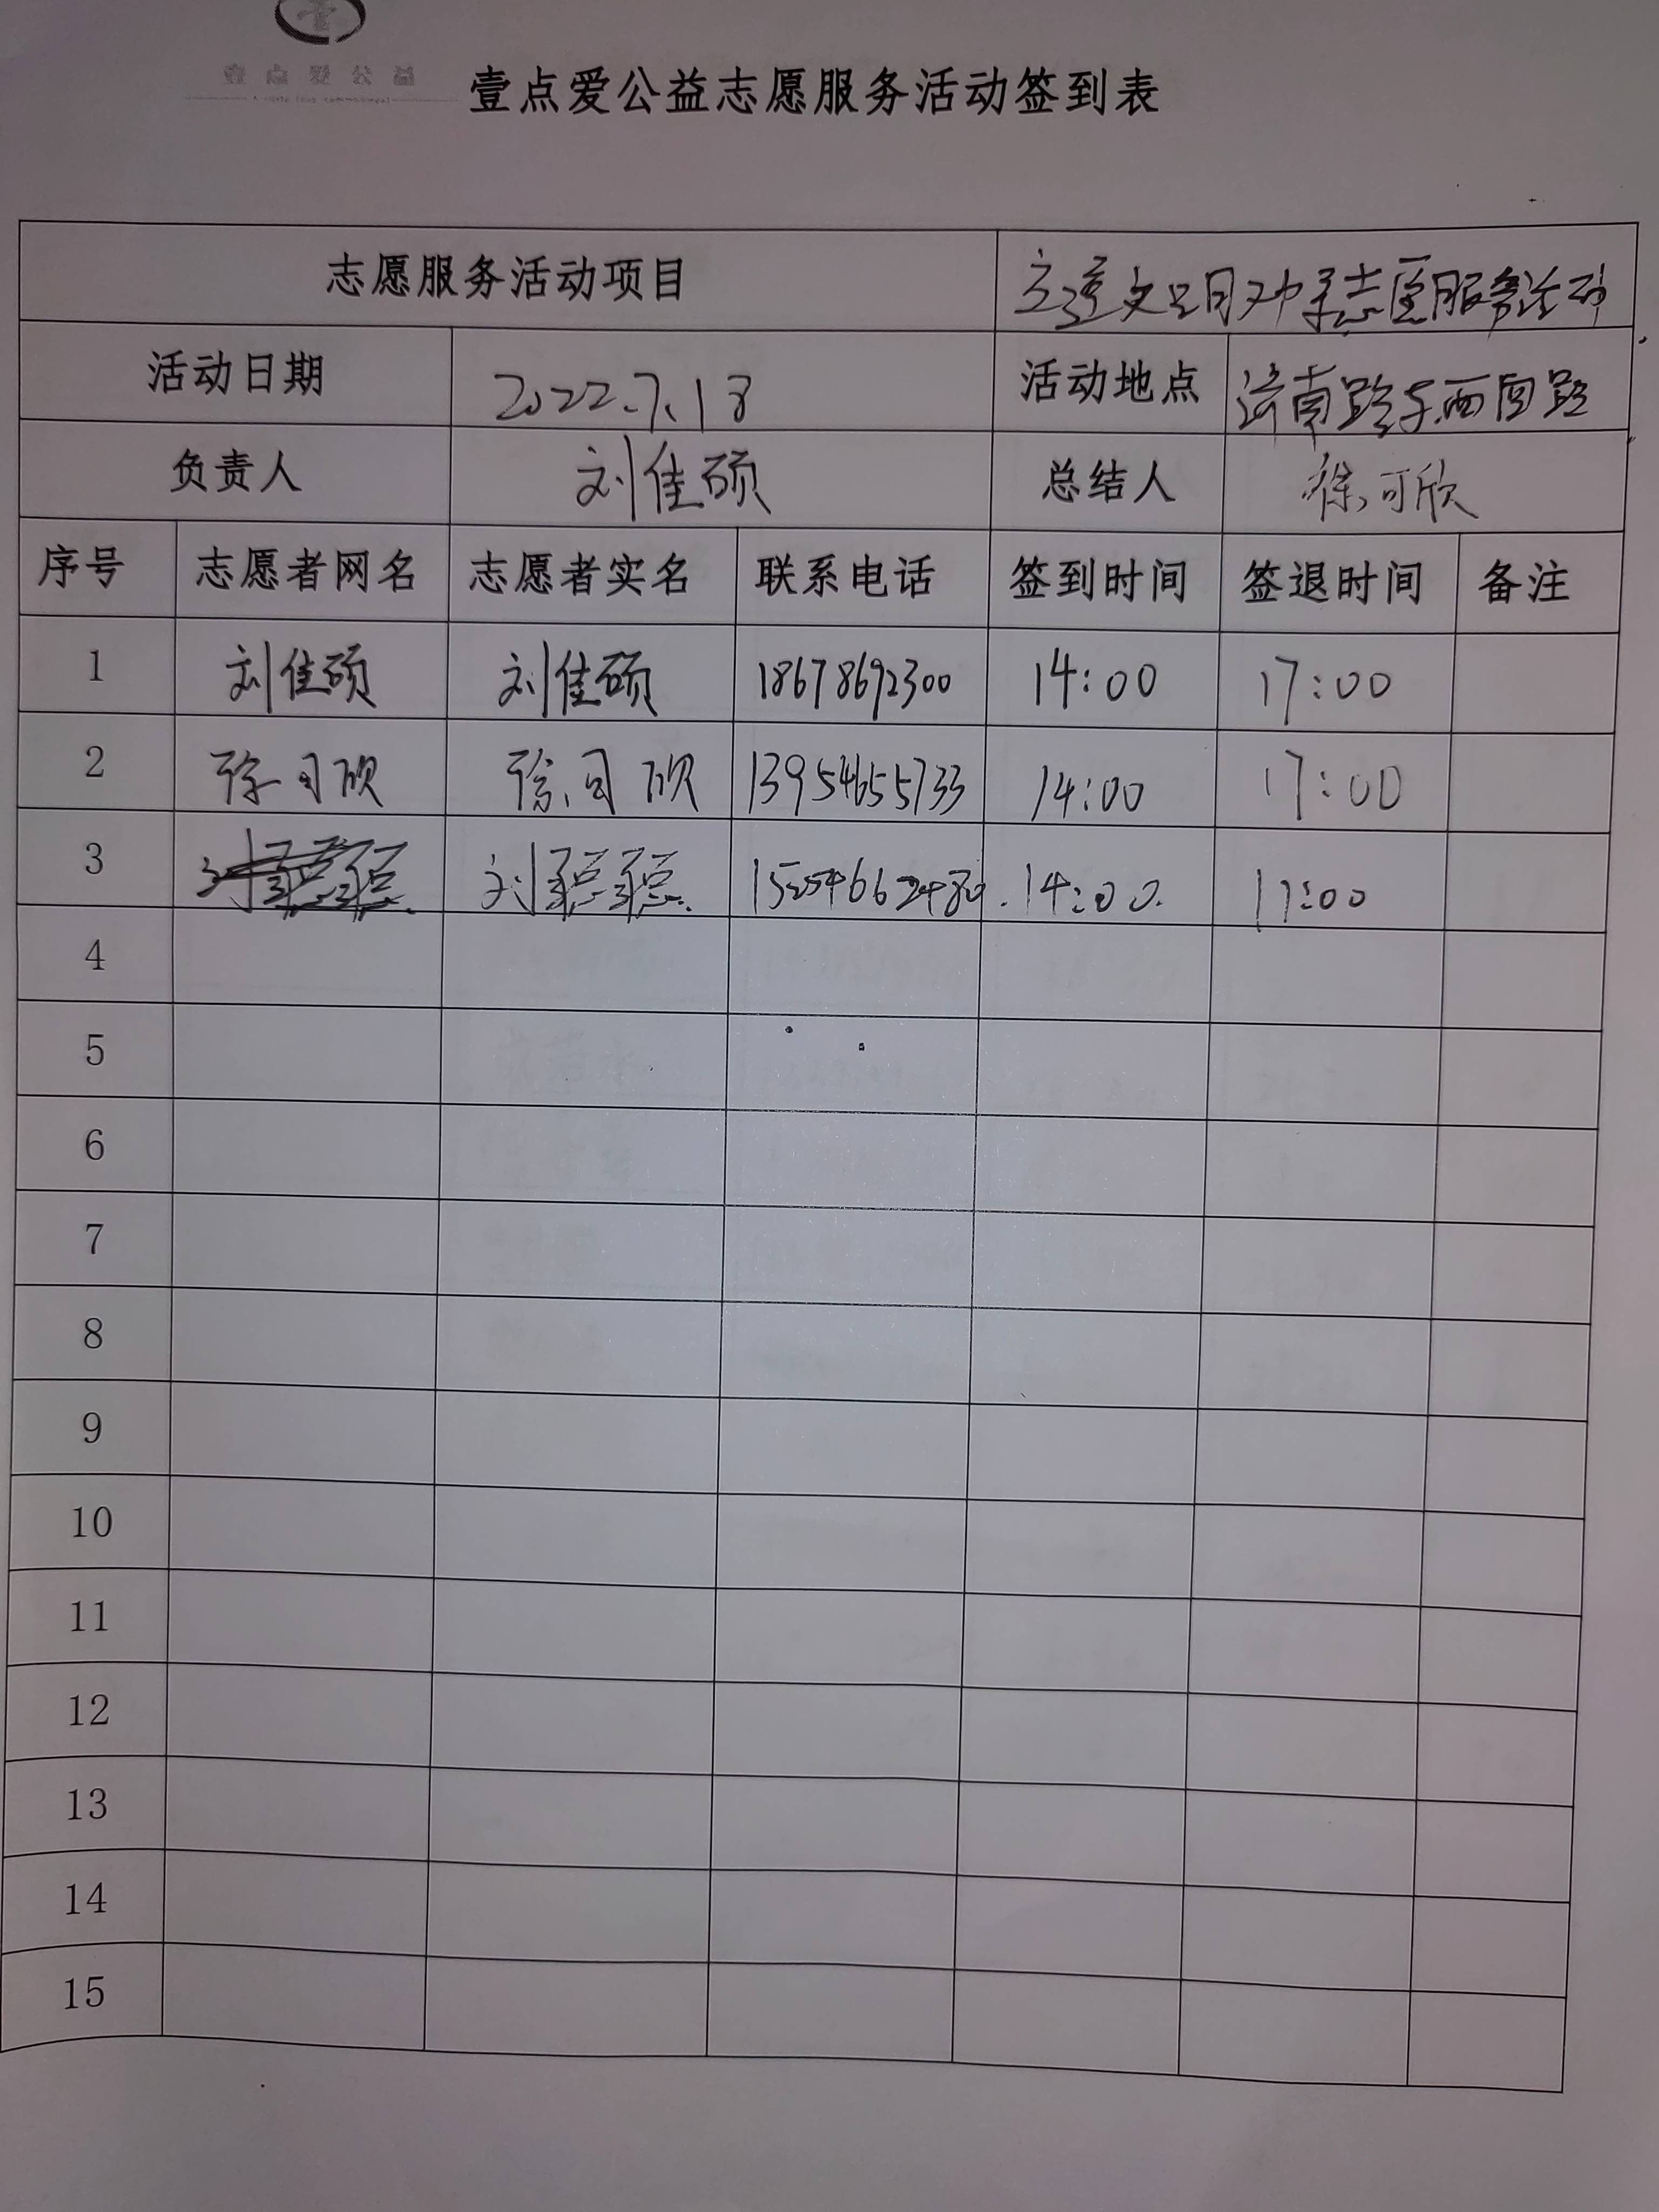 壹点爱公益
壹点爱公益志愿服务活动签到表
志愿服务活动项目 文明 志愿服务活动
活动日期 2022.7.18 活动地点 济南路与西四路
负责人 刘佳硕 总结人 徐可欣
序号 志愿者网名 志愿者实名 联系电话 签到时间 签退时间 备注
1 刘佳硕 刘佳硕 18678692300 14:00 17:00
2 徐司欣 徐司欣 13954655733 14:00 17:00
3 刘聪聪 15254662480 14:00 17:00
4
5
6
7
8
9
10
11
12
13
14
15